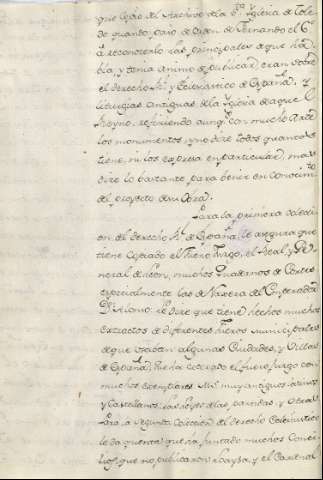 que copió del Archivo de la Sta Yglesia de Tole
do quando pasó de orden de Fernando el 6º
á reconocerlo las principales que ha
bia, y tenia animo de publicar eran sobre
el derecho Rl y Eclesiastico de España, y
liturgias antiguas de la Yglesia de aquel
Reyno, refiriendo aunqe con mucho
los monumentos, y no dire todos quantos
tiene, ni los expresa en particular, mas
dire lo bastante para venir en conocimto
del proyecto de su Obra.
Para la primera colecci
on del derecho Rl de España, le asegura que
tiene copiado el Fuero Juzgo, el Real, y Ge
neral de Leon, muchos Quadernos de Cortes
especialmente las de Naxera del Emperador
le dice que tiene hechos muchos
extractos de diferentes fueros municipales
de que usaban algunas Ciudades, y Villas
de España, que ha cotejado el fuero Juzgo con
muchos exemplares Mss muy antiguos latinos
y Castellanos, las leyes de las partidas, y otras
para la segunda coleccion del derecho Eclesiastico
le da quenta que ha juntado muchos Conci
lios, que no publicaron Loaysa, y el Cardenal